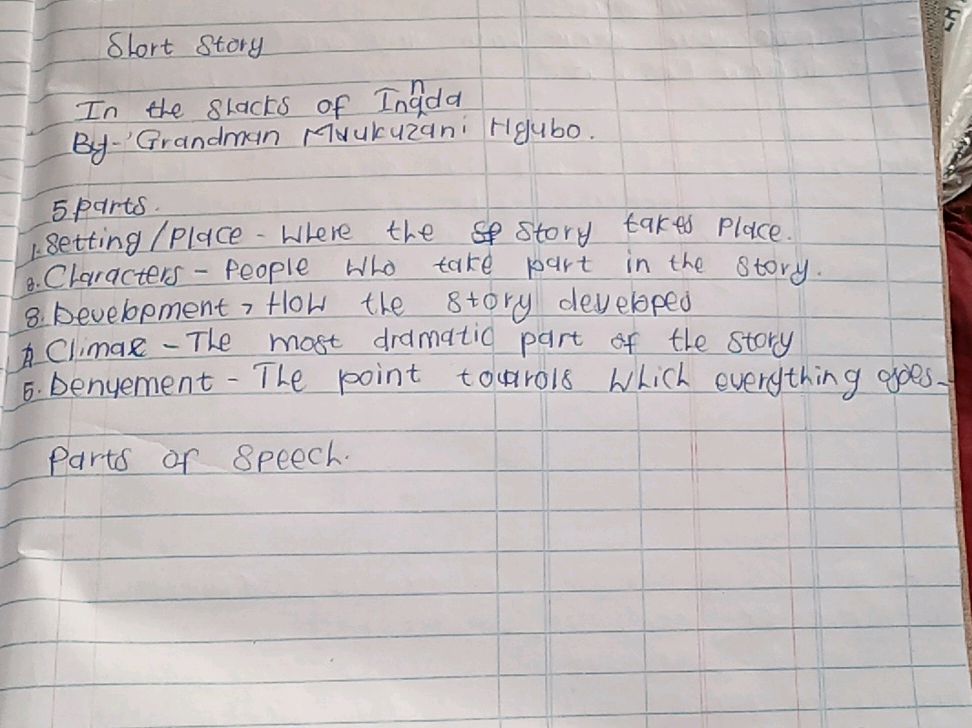 Short Story
In the Slacks of Inanda
By- Grandman Mvukuzani Ngubo.
5 parts.
1. Setting / Place - Where the Story takes Place.
2. Characters - People who take part in the story.
3. Development, How the story developed
4 Climax - The most dramatic part of the story
5. Denyement - The point towards which everything goes-
Parts of Speech.